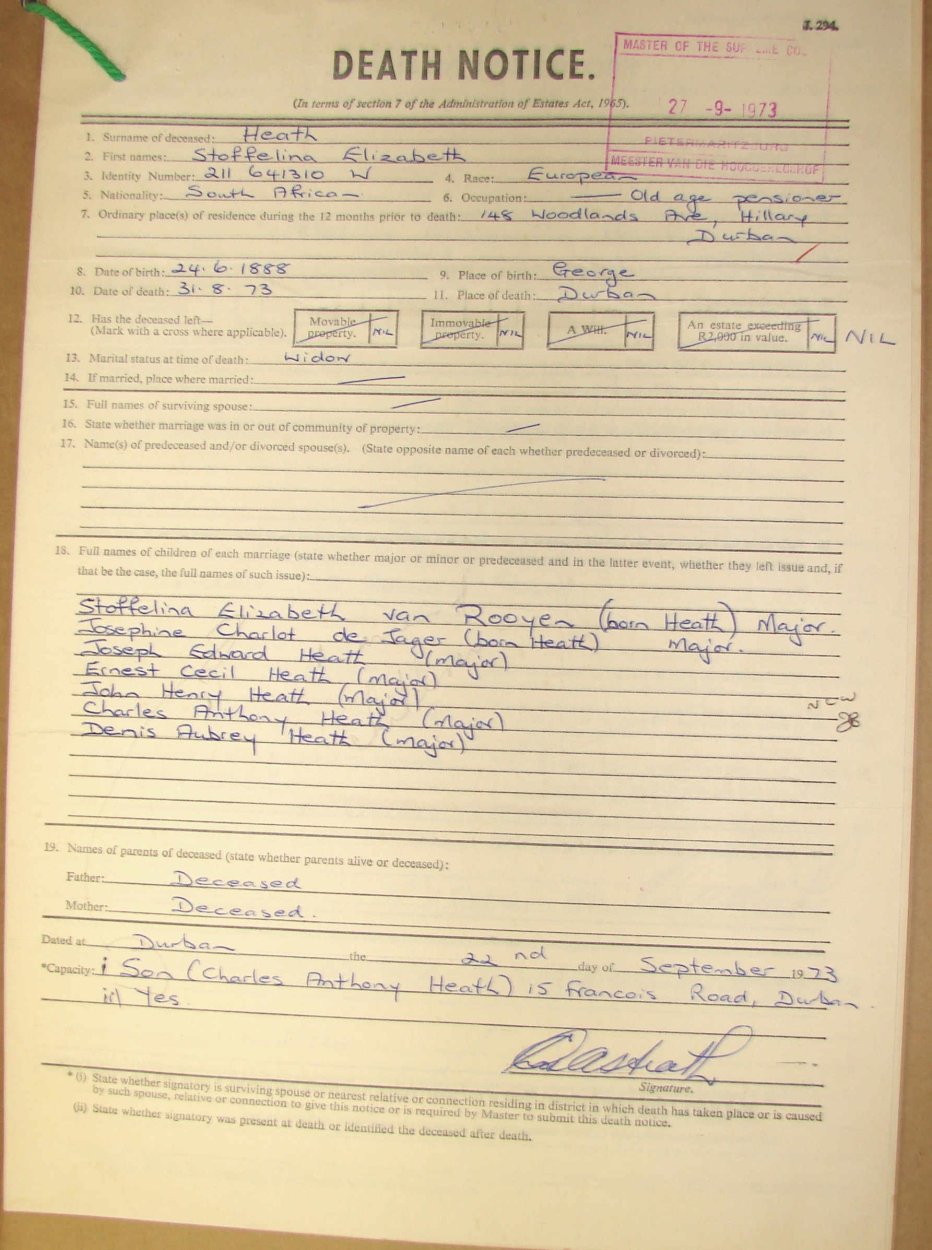 J. 294.
DEATH NOTICE.
(In terms of section 7 of the Administration of Estates Act, 1965).
MASTER OF THE SUPREME CO
27 -9- 1973
PIETERMARITZBURG
MEESTER VAN DIE HOOGGEREGSHOF
1. Surname of deceased: Heath
2. First names: Stoffelina Elizabeth
3. Identity Number: 211 641310 W 4. Race: European
5. Nationality: South African 6. Occupation: Old age pensioner
7. Ordinary place(s) of residence during the 12 months prior to death: 148 Woodlands Ave, Hillary
Durban
8. Date of birth: 24.6.1888 9. Place of birth: George
10. Date of death: 31.8.73 11. Place of death: Durban
12. Has the deceased left— (Mark with a cross where applicable). Movable property. NIL Immovable property. NIL A Will. NIL An estate exceeding R2,000 in value. NIL NIL
13. Marital status at time of death: Widow
14. If married, place where married:
15. Full names of surviving spouse:
16. State whether marriage was in or out of community of property:
17. Name(s) of predeceased and/or divorced spouse(s). (State opposite name of each whether predeceased or divorced):
18. Full names of children of each marriage (state whether major or minor or predeceased and in the latter event, whether they left issue and, if
that be the case, the full names of such issue):
Stoffelina Elizabeth van Rooyen (born Heath) Major.
Josephine Charlot de Jager (born Heath) Major.
Joseph Edward Heath (Major)
Ernest Cecil Heath (Major)
John Henry Heath (Major)
Charles Anthony Heath (Major)
Denis Aubrey Heath (Major)
19. Names of parents of deceased (state whether parents alive or deceased):
Father: Deceased
Mother: Deceased.
Dated at Durban the 22nd day of September 1973
*Capacity: i Son (Charles Anthony Heath) 15 Francois Road, Durban
ii) Yes.
Signature.
* (i) State whether signatory is surviving spouse or nearest relative or connection residing in district in which death has taken place or is caused
by such spouse, relative or connection to give this notice or is required by Master to submit this death notice.
(ii) State whether signatory was present at death or identified the deceased after death.